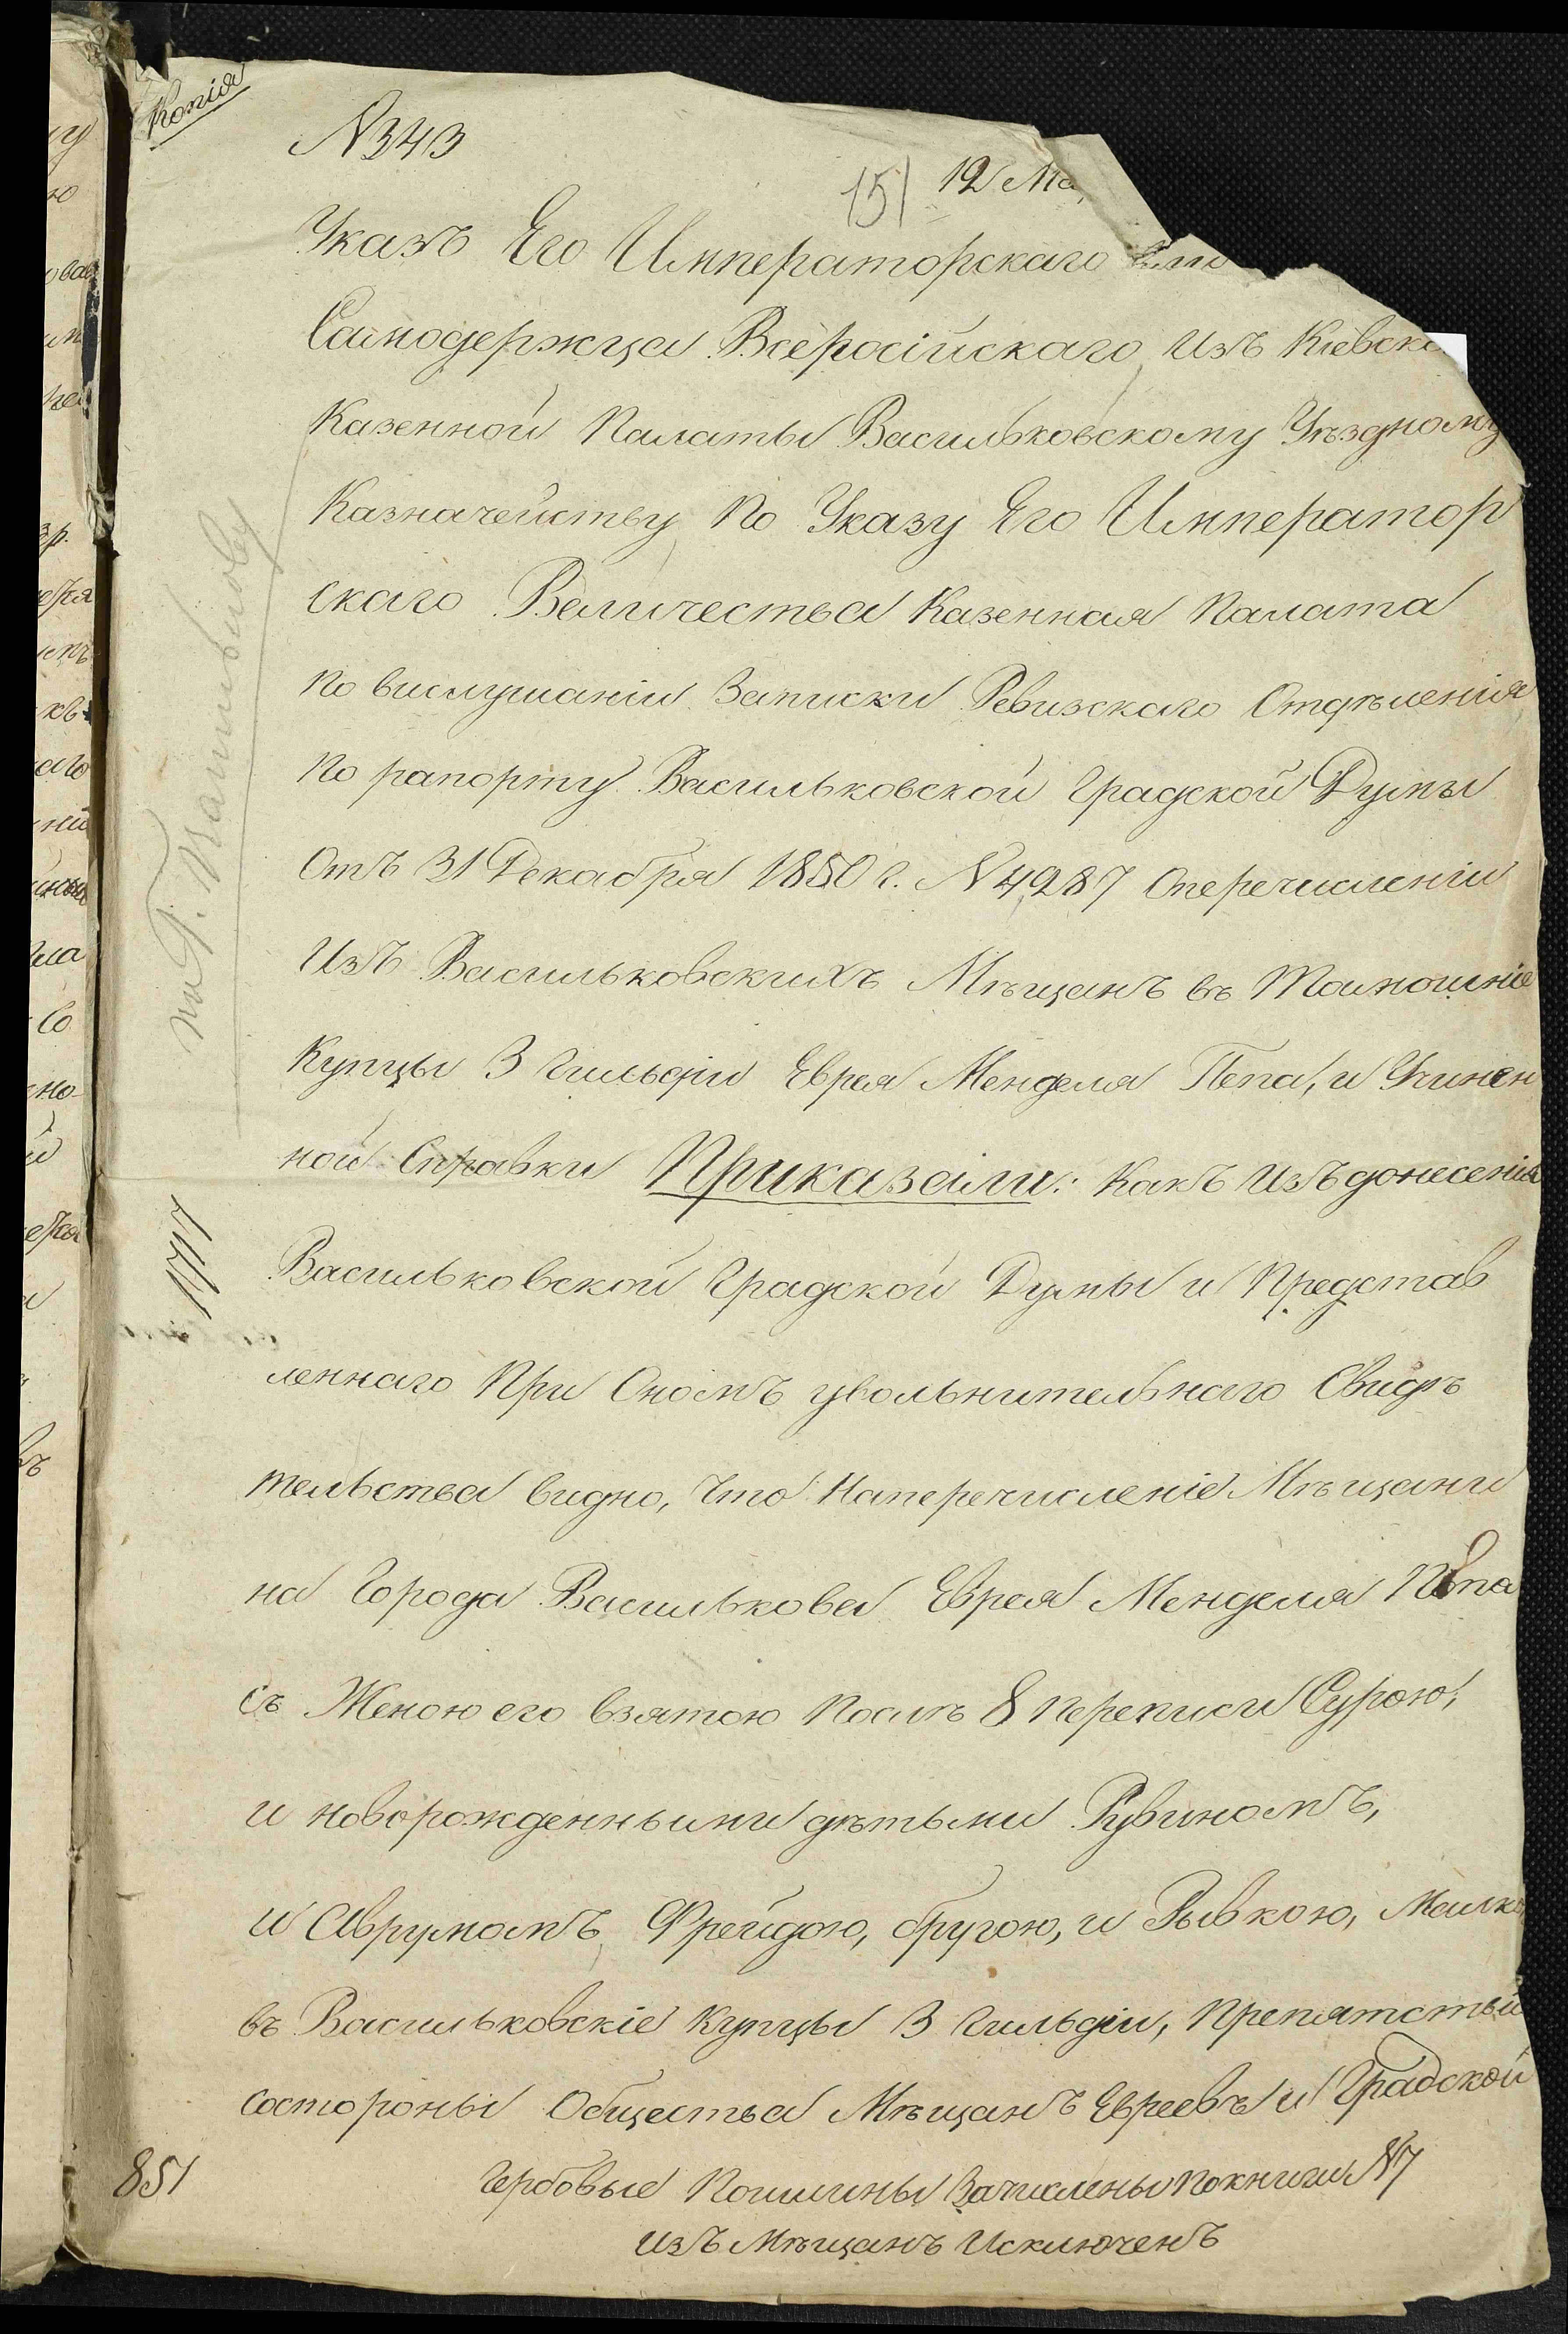 Копія
N343
151 12 Ма
Указъ Его Императорскаго
Самодержца Всеросійскаго, изъ Кіевско
Казенной Палаты Васильковскому Уѣздному
Казначейству, По Указу Его Император
скаго Величества Казенная Палата
по выслушаніи Записки Ревизскаго Отдѣленія
По рапорту Васильковской Градской Думы
Отъ 31 Декабря 1850 г. N4287 Оперечисленіи
Изъ Васильковскихъ Мѣщанъ въ Тамошніе
Купцы 3 гильдіи Еврея Менделя Пепа, и Учинен
ной Справки Приказали: Какъ Изъ донесенія
Васильковской Градской Думы и Представ
леннаго При Ономъ увольнительнаго Свидѣ
тельства видно, Что Наперечисленіе Мѣщани
на Города Василькова Еврея Менделя Пепа
съ Женою его взятою Послѣ 8 переписи Сурою,
и новорожденными дѣтьми Рувиномъ,
и Аврумомъ, Фрейдою, бругою, и Рывкою, Малко
въ Васильковскіе Купцы 3 гильдіи, Препятствій
состороны Общества Мѣщанъ Евреевъ и Градской
Гербовые Пошлины Зачислены По книги N7
изъ Мѣщанъ Исключенъ
1717
851